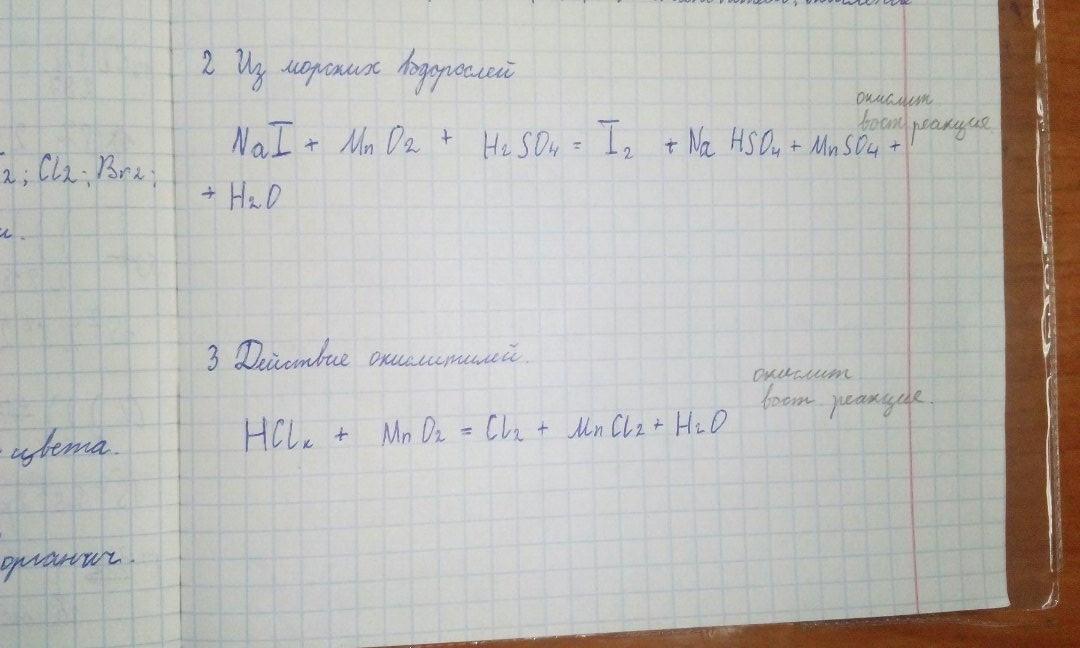 2; Cl2; Br2;
цвета.
органич.
2 Из морских водорослей
окислит
вост реакция
NaI + MnO2 + H2SO4 = I2 + Na HSO4 + MnSO4 +
+ H2O
3 Действие окислитилей.
окислит
вост. реакция.
HClк + MnO2 = Cl2 + MnCl2 + H2O